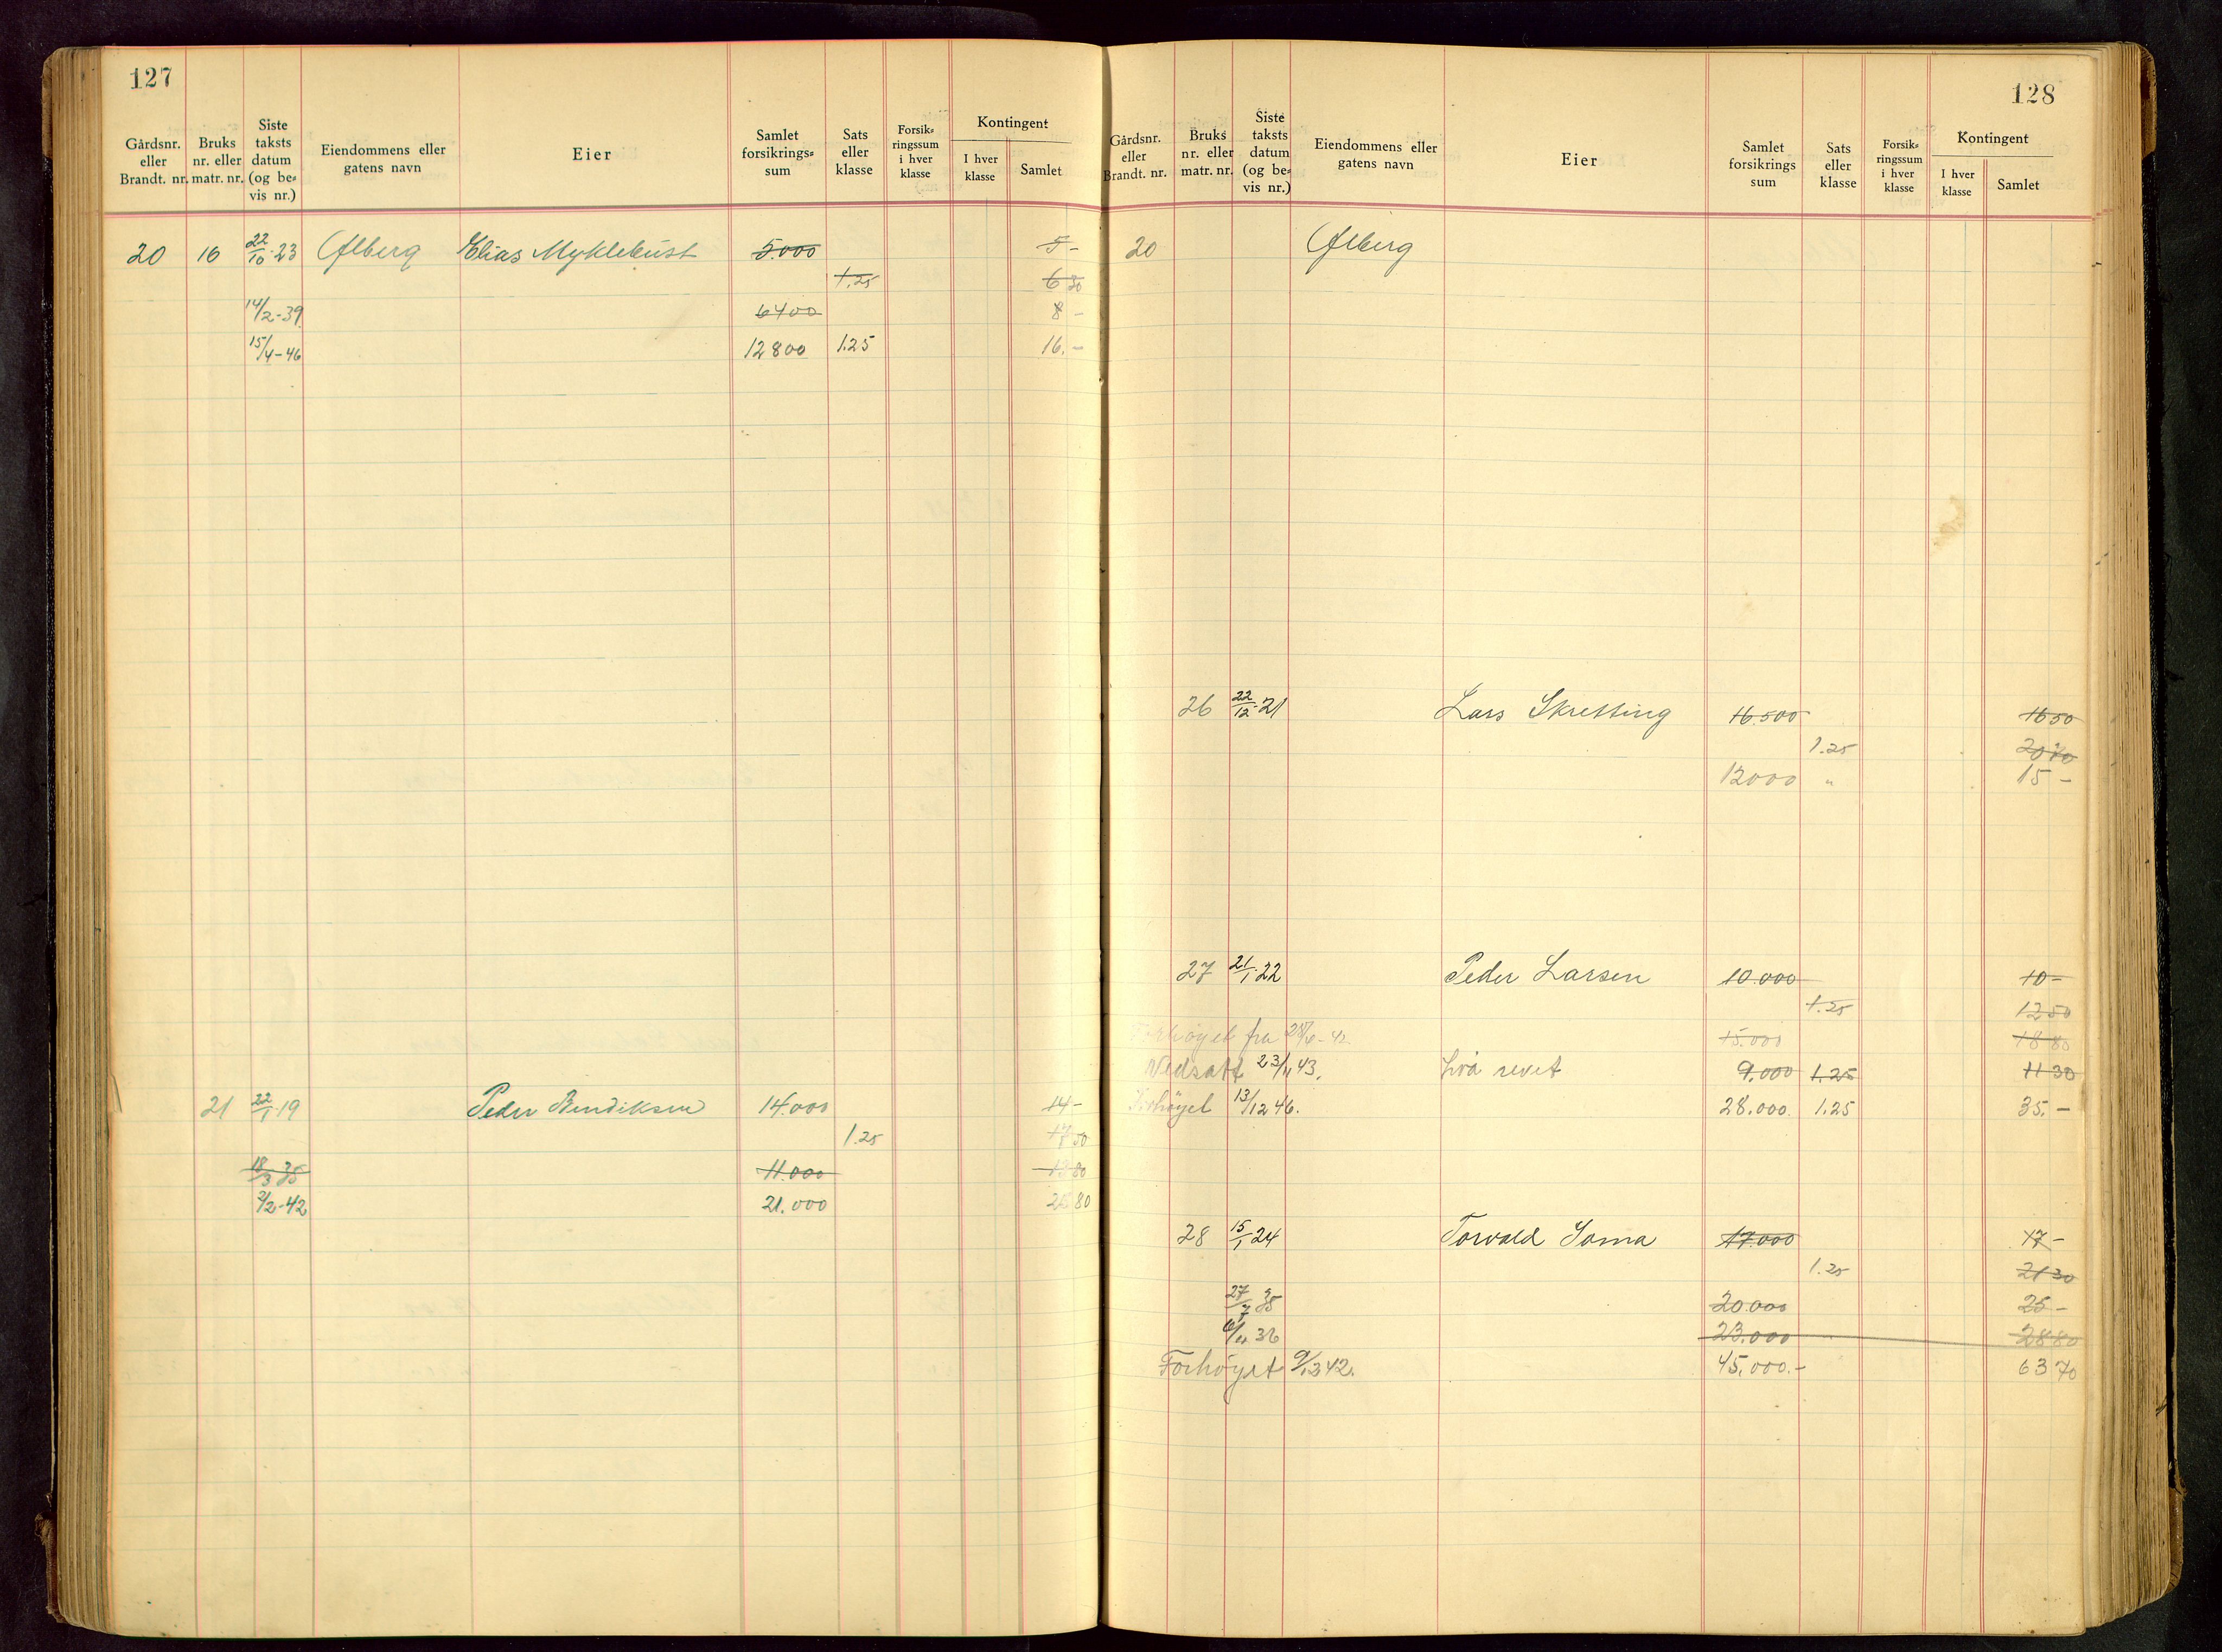 127
Gårdsnr. eller Brandt. nr. Bruks nr. eller matr. nr. Siste taksts datum (og be= vis nr.) Eiendommens eller gatens navn Eier Samlet forsikrings= sum Sats eller klasse Forsik= ringssum i hver klasse Kontingent I hver klasse Samlet
20 16 22/10-23 Ølberg Elias Myklebust 5.000 5-
1.25 6 30
14/2-39 6400 8-
15/4-46 12800 1.25 16.-
21 22/1-19 Peder Bendiksen 14.000 14-
1.25 17 50
18/3 35 11.000 13 80
2/2-42 21.000 80
128
Gårdsnr. eller Brandt. nr. Bruks nr. eller matr. nr. Siste taksts datum (og be= vis nr.) Eiendommens eller gatens navn Eier Samlet forsikrings sum Sats eller klasse Forsik= ringssum i hver klasse Kontingent I hver klasse Samlet
20 Ølberg
26 22/12-21 Lars Skretting 16.500 16 50
1.25 20 70
12000 " 15-
27 21/1-22 Peder Larsen 10.000 10-
1.25 12 50
Forhøyet fra 15.000 18 80
Nedsatt 23/11 43. 9.000 1.25 11 30
Forhøyet 13/12 46. 28.000. 1.25 35.-
28 15/1 24 Torvald Soma 17.000 17-
1.25 21 30
27/7 35 20.000 25-
6/11 36 23.000 28 80
Forhøyet 42. 45.000.- 63 70